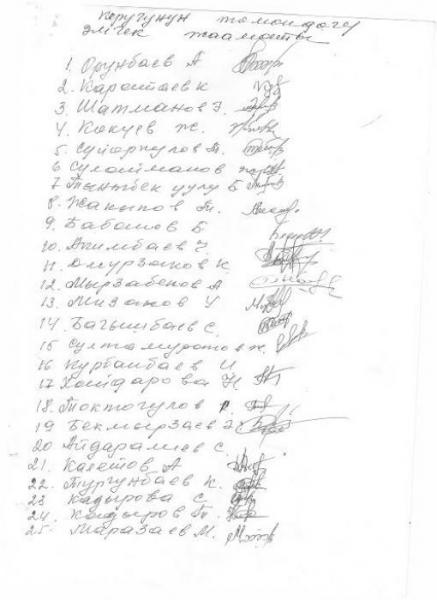 көругунун томондогу
элчек жааматы
1. Орунбаев А
2. Карагтаев К
3. Шатманов Э.
4. Какуев Ж.
5. Суйоркулов Т.
6 Сулайманов
7 Тынтбек уулу Б
8 Жакыпов Т.
9. Бабашов Б
10. Акимбаев Ч
11. Омурзаков К
12. Мырзабеков А
13. Мизанов У
14. Багышбаев С.
15 Султамуратов Ж.
16 Курбанбаев И
17 Хайдарова Н
18. Токтогулов Р.
19 Бекмырзаев Э
20 Айдаралиев С.
21. Кагетов А
22. Тургунбаев К.
23 Кадырова С.
24. Кадыров Т.
25. Маразаев М.